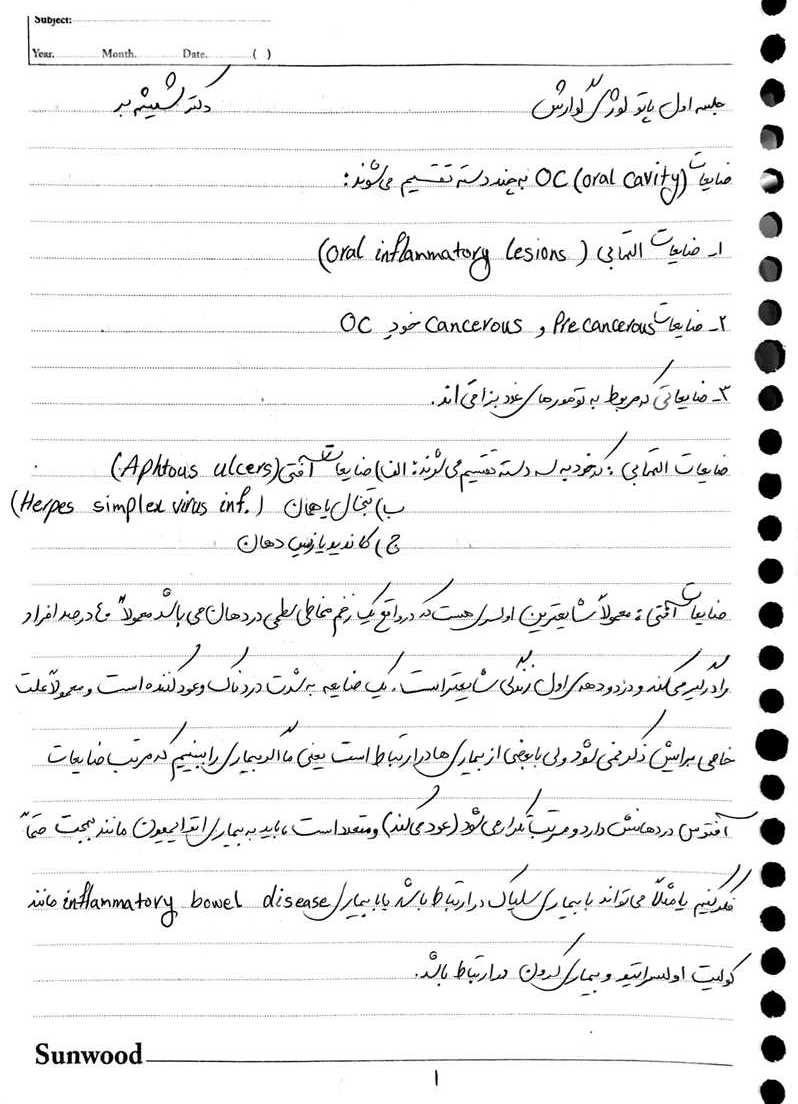 Subject:
Year. Month. Date. ( )
جلسه اول پاتولوژی گوارش دکتر شیشه بر
ضایعات OC (oral cavity) به چند دسته تقسیم می‌شوند:
۱ـ ضایعات التهابی (oral inflammatory lesions)
۲ـ ضایعات Precancerous و cancerous خود OC
۳ـ ضایعاتی که مربوط به تومورهای غدد بزاقی‌اند.
ضایعات التهابی: که خود به سه دسته تقسیم می‌شوند: الف) ضایعات آفتی (Aphtous ulcers)
ب) تبخال یا همان (Herpes simplex virus inf.)
ج) کاندیدیازیس دهان
ضایعات آفتی: معمولاً شایعترین اولسری هست که در واقع یک زخم مخاطی سطحی در دهان می باشد معمولاً ۴۰ درصد افراد
را درگیر میکند و در دو دهه‌ی اول زندگی شایعتر است. یک ضایعه به شدت دردناک و عودکننده است و معمولاً علت
خاصی برایش ذکر نمی شود ولی با بعضی از بیماری ها در ارتباط است یعنی ما اگر بیماری را ببینیم که مرتب ضایعات
آفتوس در دهانش دارد و مرتباً تکرار می‌شود (عود می‌کند) و متعدد است، باید به بیماری اتوایمیون مانند بهجت حتماً
فکر کنیم یا مثلاً می‌تواند با بیماری سلیاک در ارتباط باشد یا با بیماری inflammatory bowel disease مانند
کولیت اولسراتیو و بیماری کرون در ارتباط باشد.
Sunwood
۱